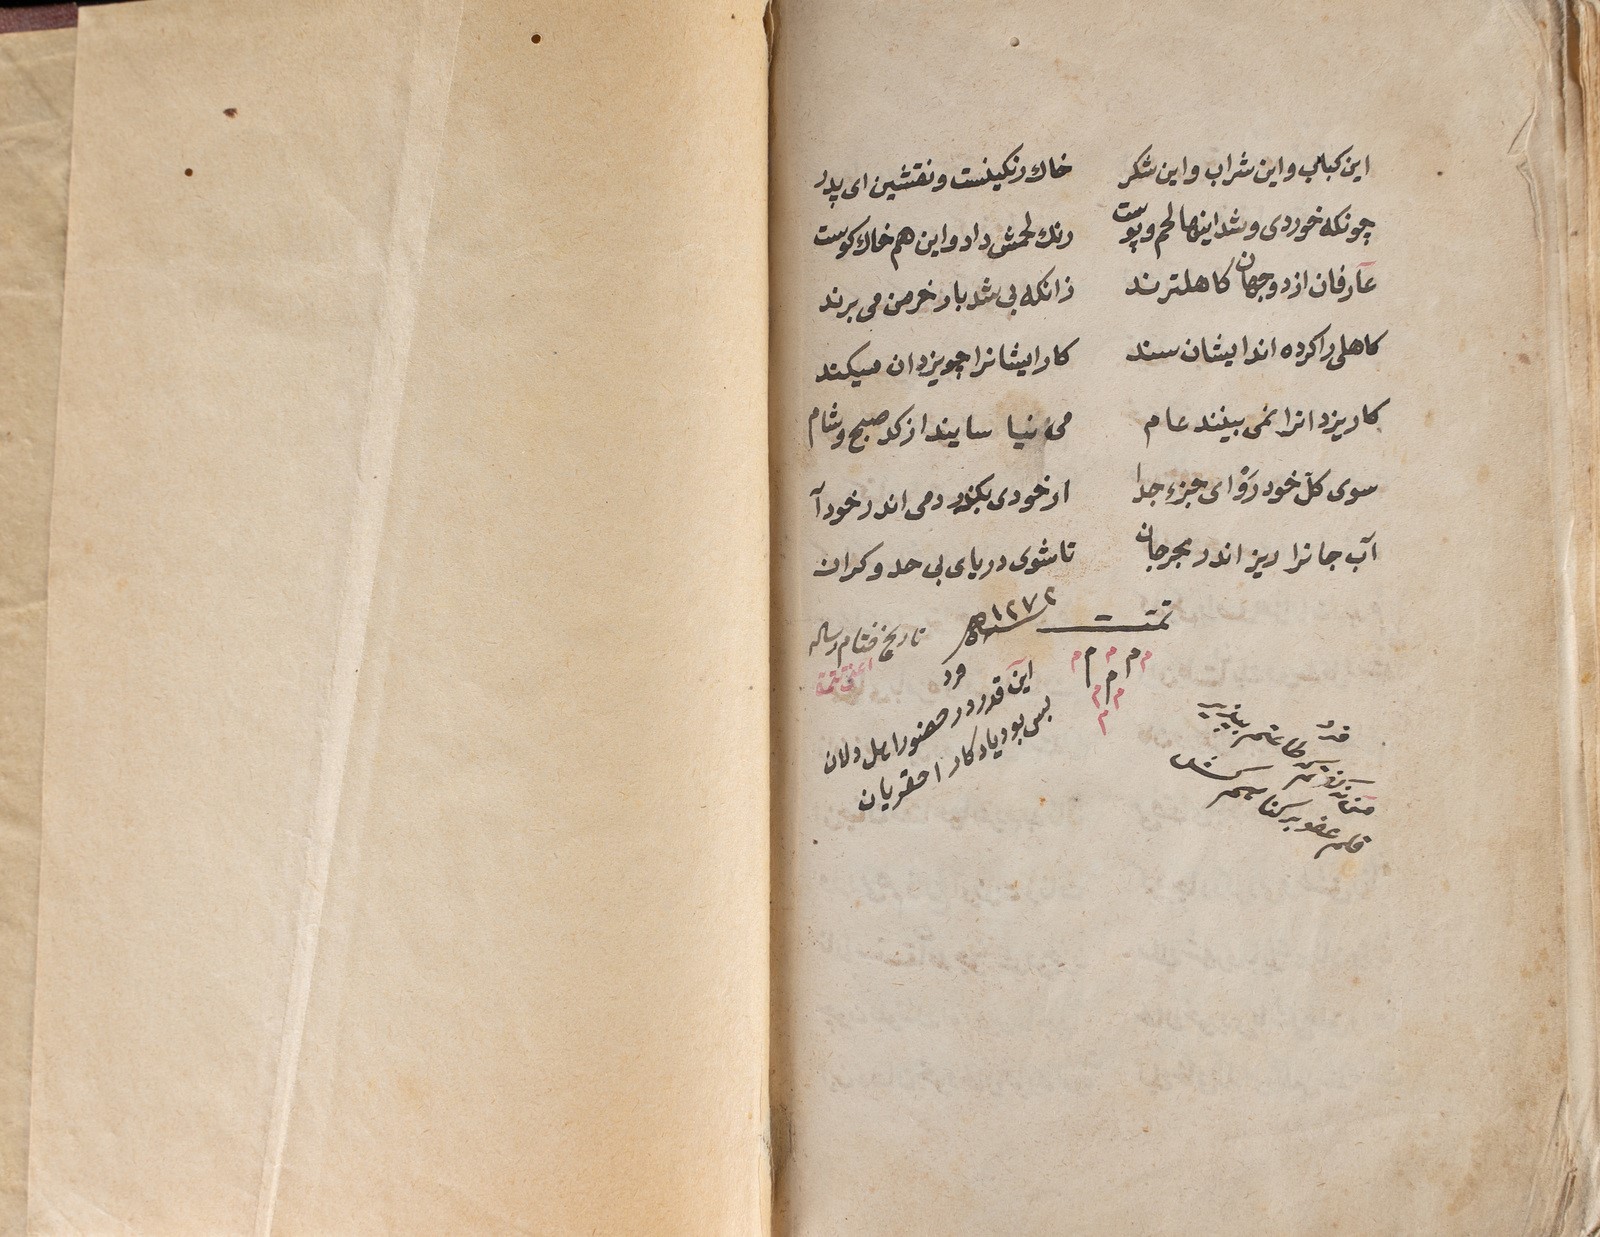 این کباب و این شراب و این شکر خاك رنکینست و نقشین ای پدر
چونکه خوردی و شد اینها لحم و پوست رنك لحمش داد و این هم خاك کوست
عارفان از دو جهان کاهلترند زانکه بی شد یار خرمن می برند
کاهلی را کرده اند ایشان سند کار ایشانرا چو یزدان میکند
کار یزدانرا نمی بینند عام می نیا سایند از کد صبح و شام
سوی کلّ خود رَوْ ای جزء جدا از خودی بکذر دمی اندر خود آ
آب جانرا ریز اندر بحر جان تا شوی دریای بی حد و کران
تمت سنه ۱۲۷۲ تاریخ ختام رساله
م م م م م
م م م
م
فرد
این قدر در حضور اهل دلان
بس بود یادکار احقریان